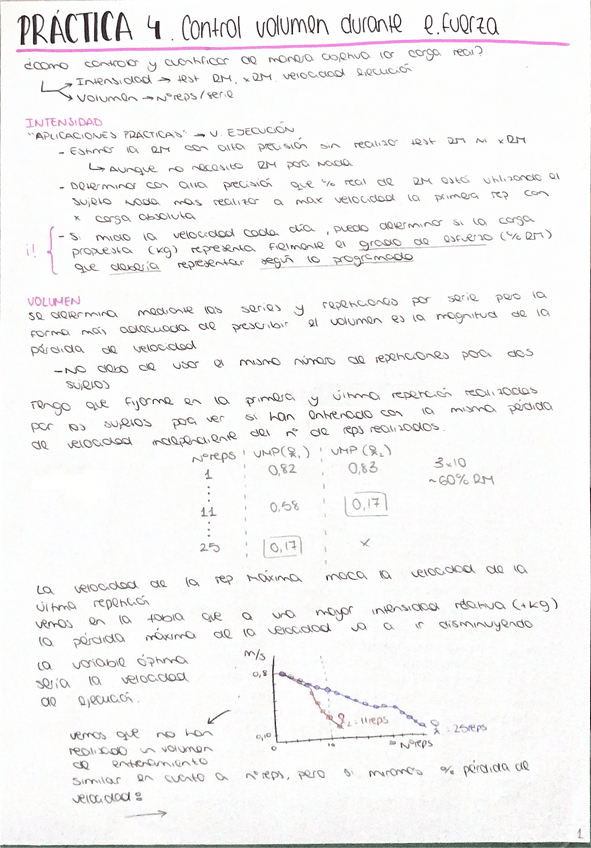 PRÁCTICA 4. Control volumen durante e.fuerza
¿Cómo controlar y cuantificar de manera objetiva la carga real?
Intensidad → test RM, xRM, velocidad ejecución
Volumen → Nº reps/serie
INTENSIDAD
"APLICACIONES PRÁCTICAS" → V. EJECUCIÓN
- Estimar la RM con alta precisión sin realizar test RM ni xRM
↳ Aunque no necesito RM para nada
- Determinar con alta precisión que % real de RM está utilizando el
sujeto nada más realizar a max velocidad la primera rep con
x carga absoluta
¡! - Si mido la velocidad cada día, puedo determinar si la carga
propuesta (kg) representa fielmente el grado de esfuerzo (% RM)
que debería representar según lo programado
VOLUMEN
Se determina mediante las series y repeticiones por serie pero la
forma más adecuada de prescribir el volumen es la magnitud de la
pérdida de velocidad
- No debo de usar el mismo número de repeticiones para dos
sujetos
Tengo que fijarme en la primera y última repetición realizadas
por los sujetos para ver si han entrenado con la misma pérdida
de velocidad independiente del nº de reps realizados.
Nº reps VMP(1) VMP(2)
1 0,82 0,83 3x10
~60% RM
11 0,58 0,17
25 0,17 x
La velocidad de la rep máxima maca la velocidad de la
última repetición
vemos en la tabla que a una mayor intensidad relativa (+kg)
la pérdida máxima de la velocidad va a ir disminuyendo
La variable óptima
sería la velocidad
de ejecución.
m/s
0,8
0,10
0
10
20
Nºreps
2 = 11 reps
= 25 reps
vemos que no han
realizado un volumen
de entrenamiento
similar en cuanto a nº reps, pero si miramos % pérdida de
velocidad:
1